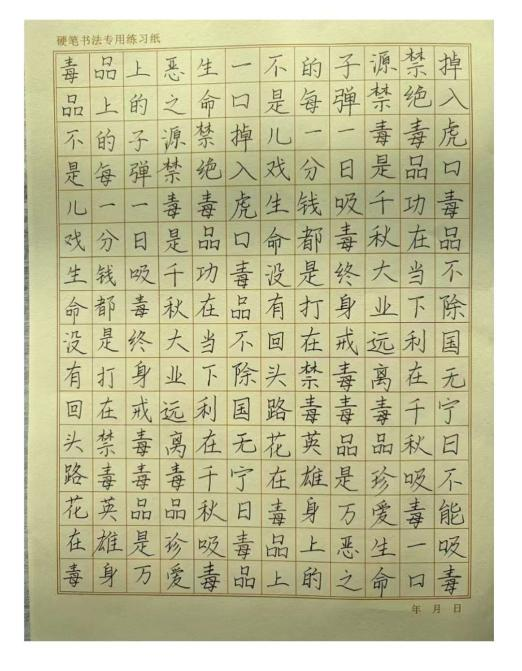 硬笔书法专用练习纸
毒品不是儿戏生命没有回头路花在毒
品上的每一分钱都是打在禁毒英雄身
上的子弹一日吸毒终身戒毒毒品是万
恶之源禁毒是千秋大业远离毒品珍爱
生命禁绝毒品功在当下利在千秋吸毒
一口掉入虎口毒品不除国无宁日毒品
不是儿戏生命没有回头路花在毒品上
的每一分钱都是打在禁毒英雄身上的
子弹一日吸毒终身戒毒毒品是万恶之
源禁毒是千秋大业远离毒品珍爱生命
禁绝毒品功在当下利在千秋吸毒一口
掉入虎口毒品不除国无宁日不能吸毒
年 月 日